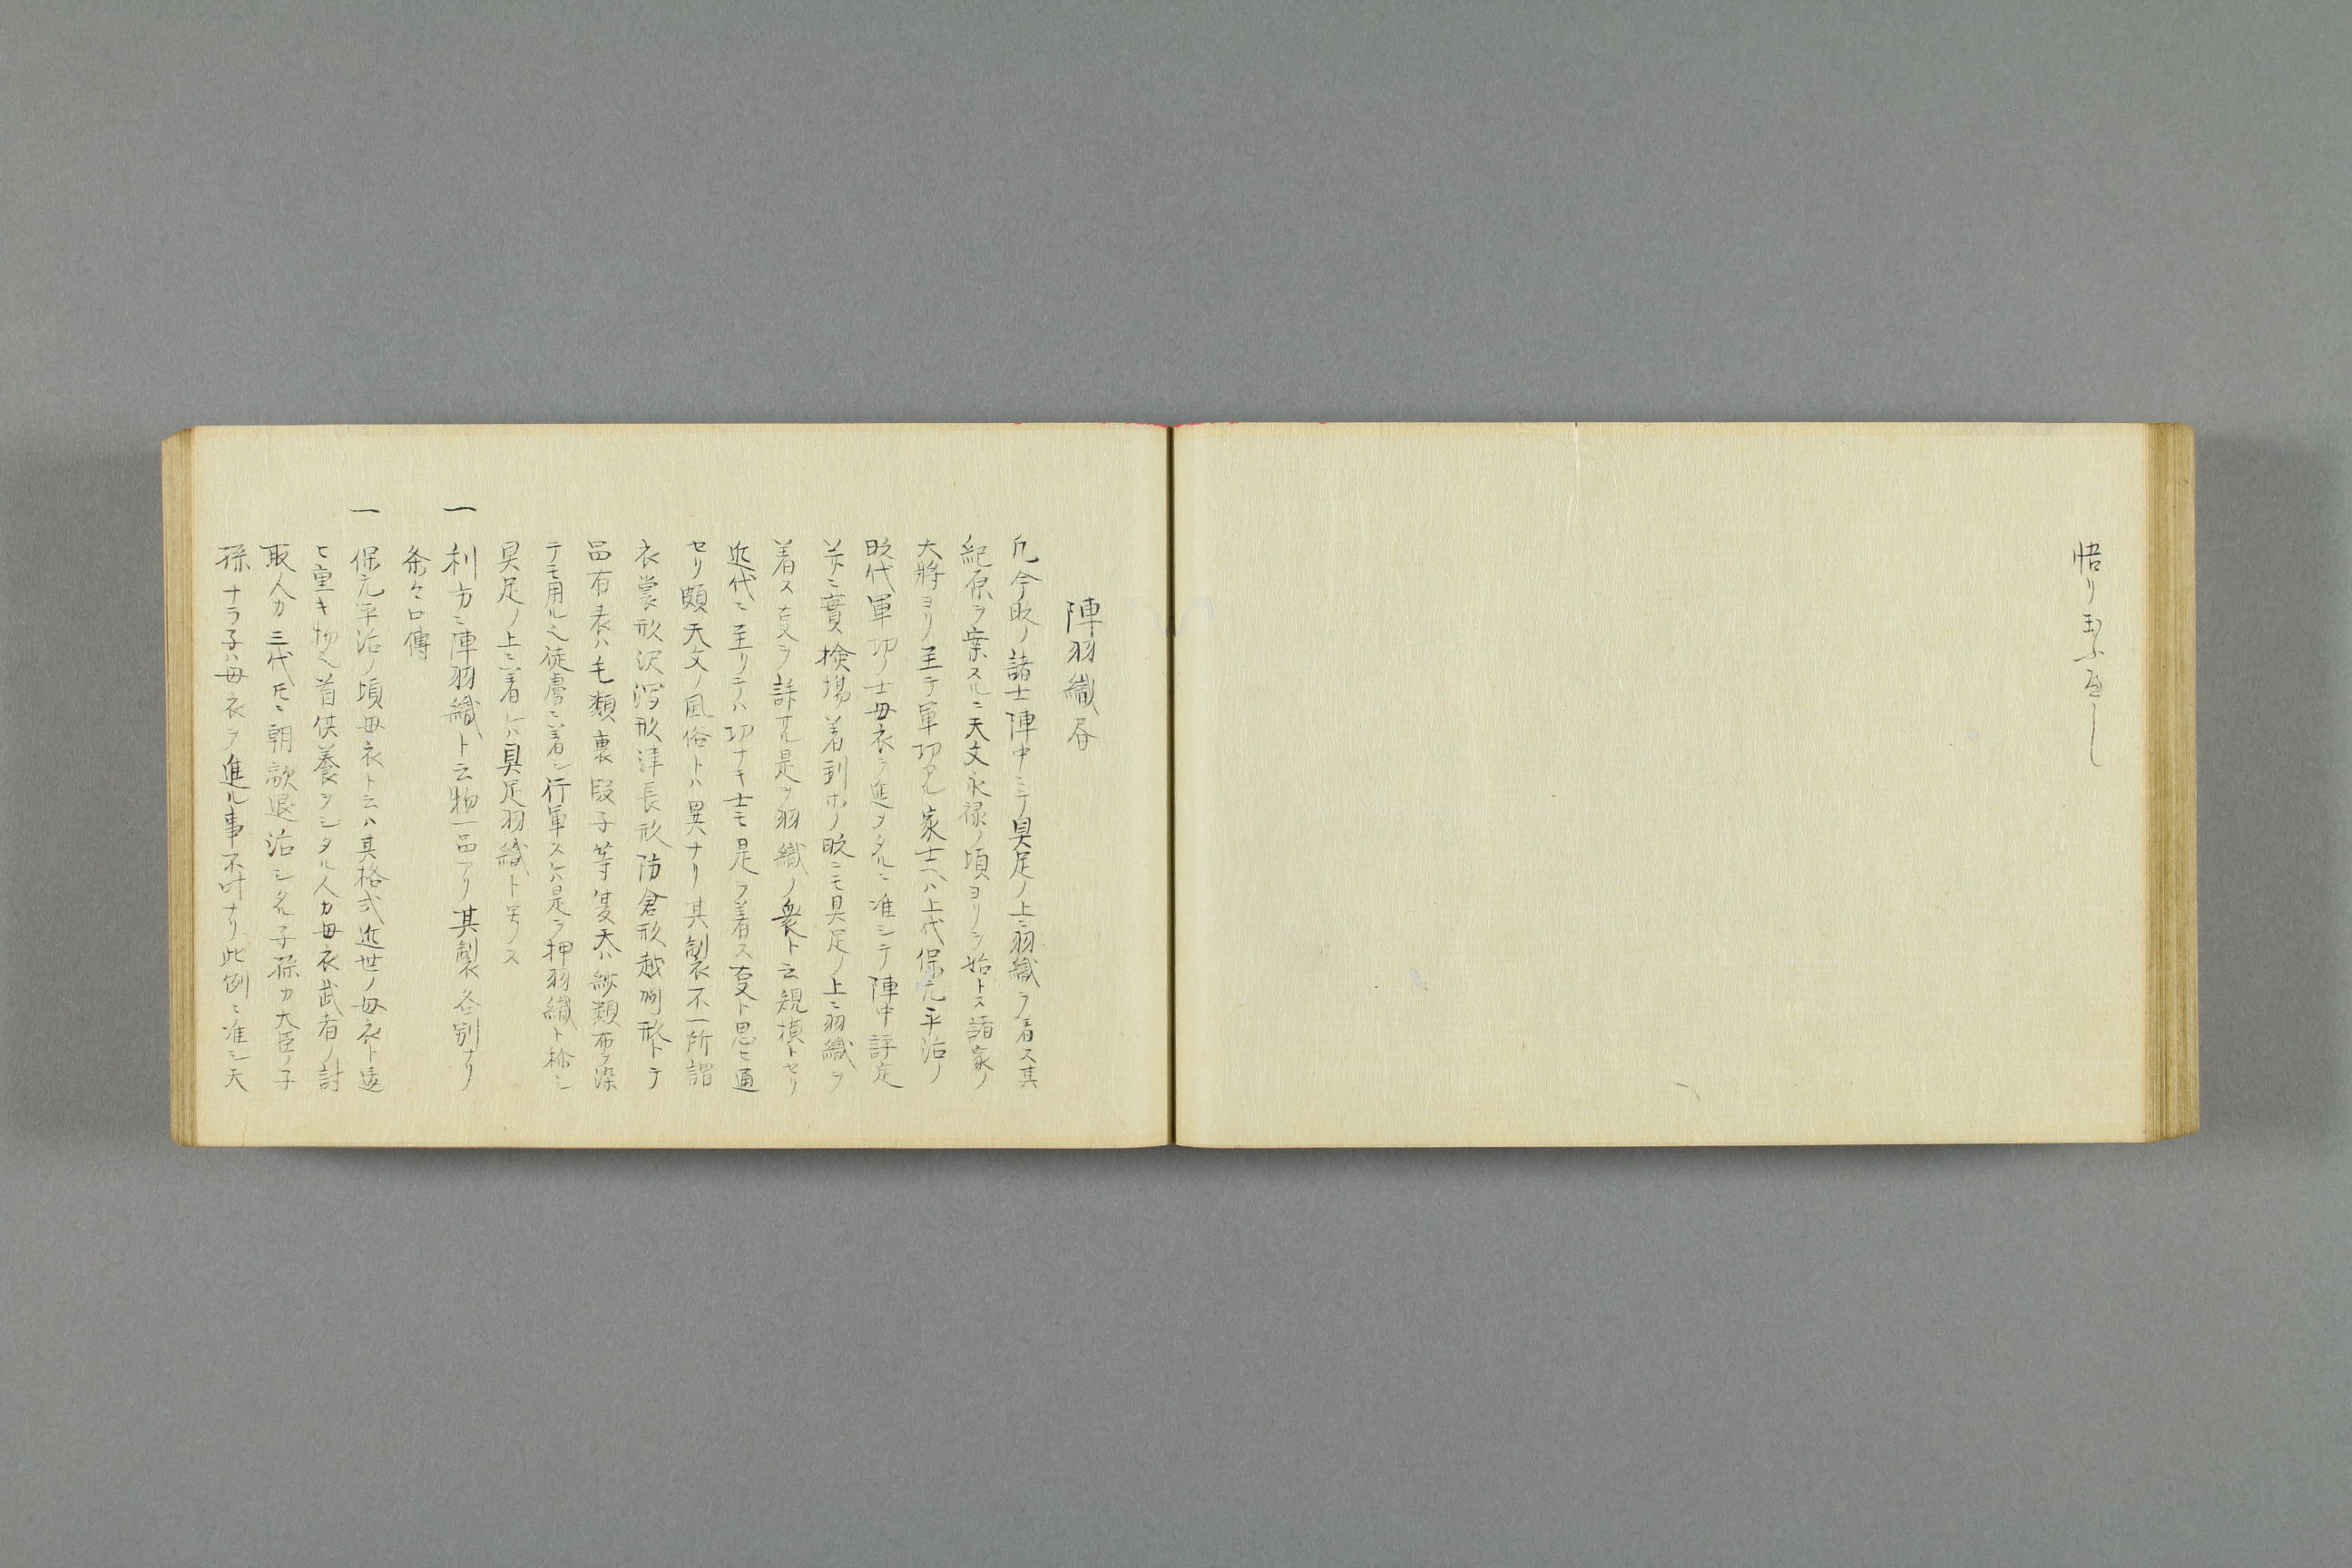 悟リ玉フベシ
陣羽織
凡今時ノ諸士陣中ニテ具足ノ上ニ羽織ヲ着ス其
紀原ヲ案スルニ天文永禄ノ頃ヨリシ始トス諸家ノ
大將ヨリ至テ軍功アル家士ヘハ上代保元平治ノ
時代軍功ノ士母衣ヲ進メタルニ准シテ陣中評定
并ニ實検場着到ホノ時ニモ具足ノ上ニ羽織ヲ
着ス㕝ヲ許サル是ヲ羽織ノ衆ト云規摸トセリ
近代ニ至リテハ功ナキ士モ是ヲ着ス㕝ト思ヒ通
セリ頗天文ノ風俗トハ異ナリ其製不一所謂
衣裳形沢瀉形津長形防倉形越列形トテ
品有表ハ毛類裏段子等夏天ハ紗類布ヲ染
テモ用ル也徒膚ニ着シ行軍スルハ是ヲ押羽織ト称シ
具足ノ上ニ着ルハ具足羽織ト号ス
一 利方ニ陣羽織ト云物一品アリ其製各別ナリ
条々口傳
一 保元平治ノ頃母衣ト云ハ其格式近世ノ母衣ト違
ヒ重キ物也首供養ヲシタル人カ母衣武者ノ討
取人カ三代モニ朝敵退治シタル子孫カ大臣ノ子
孫ナラ子ハ母衣ヲ進ル事不叶ナリ此例ニ准シ天